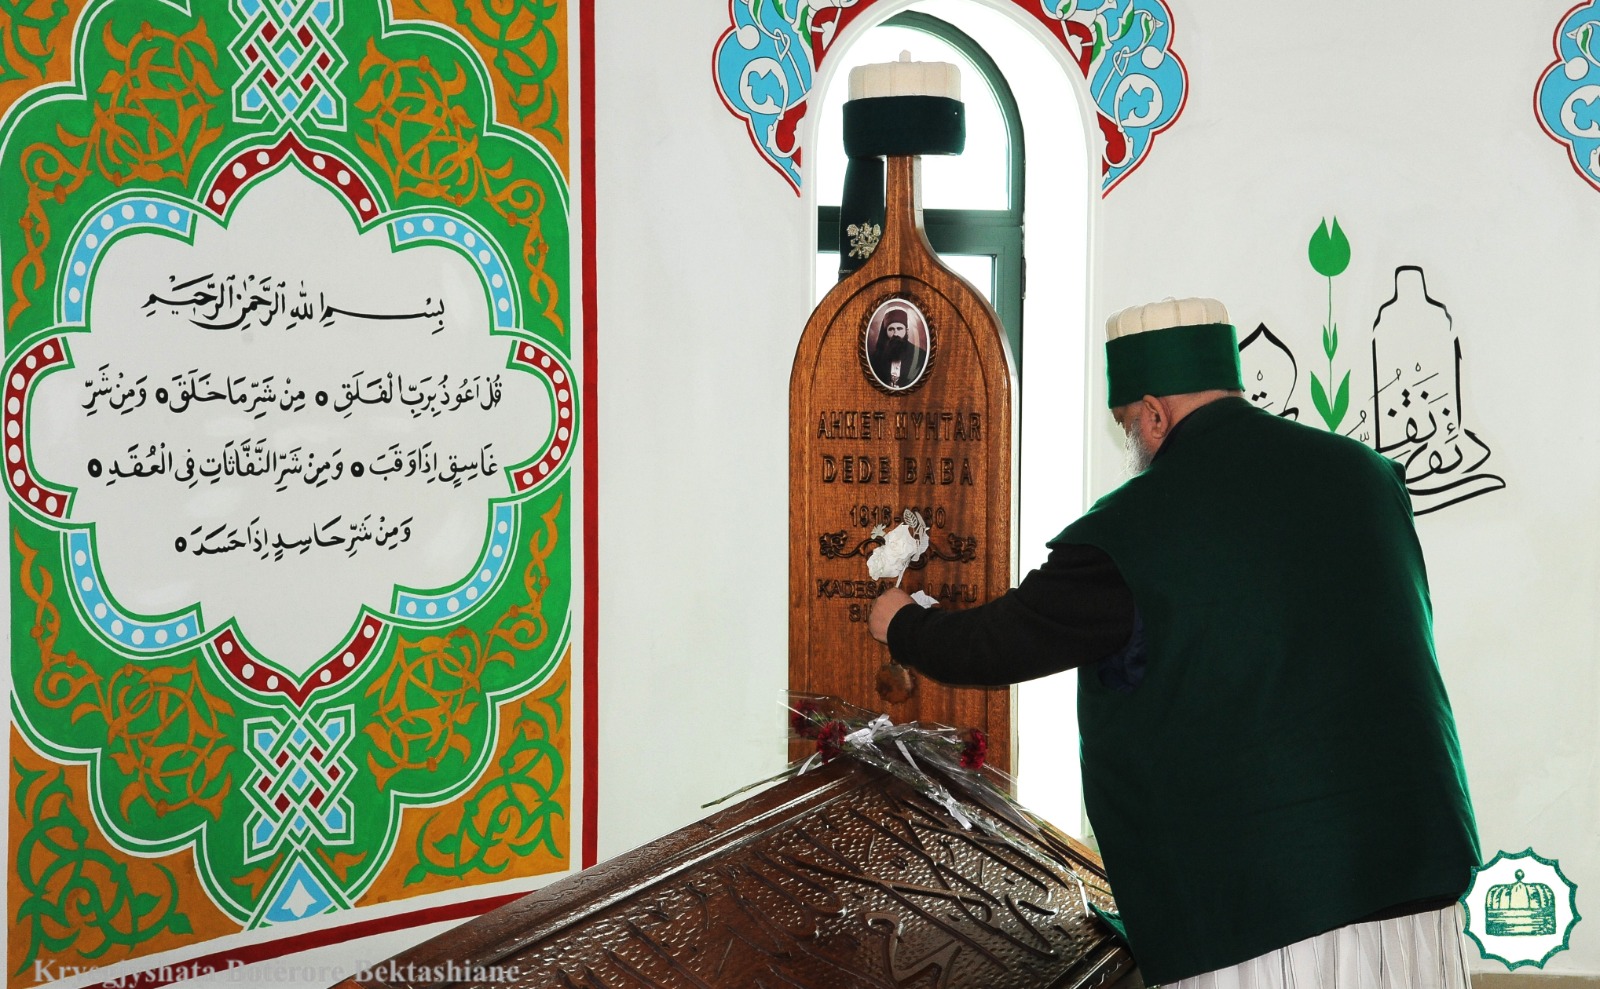 بِسْمِ اللهِ الرَّحْمٰنِ الرَّحِيْمِ
قُلْ اَعُوذُ بِرَبِّ الْفَلَقِ ٥ مِنْ شَرِّ مَا خَلَقَ ٥ وَمِنْ شَرِّ
غَاسِقٍ اِذَا وَقَبَ ٥ وَمِنْ شَرِّ النَّفَّاثَاتِ فِى الْعُقَدِ ٥
وَمِنْ شَرِّ حَاسِدٍ اِذَا حَسَدَ ٥
AHMET MYHTAR
DEDE BABA
Kryegjyshata Botërore Bektashiane